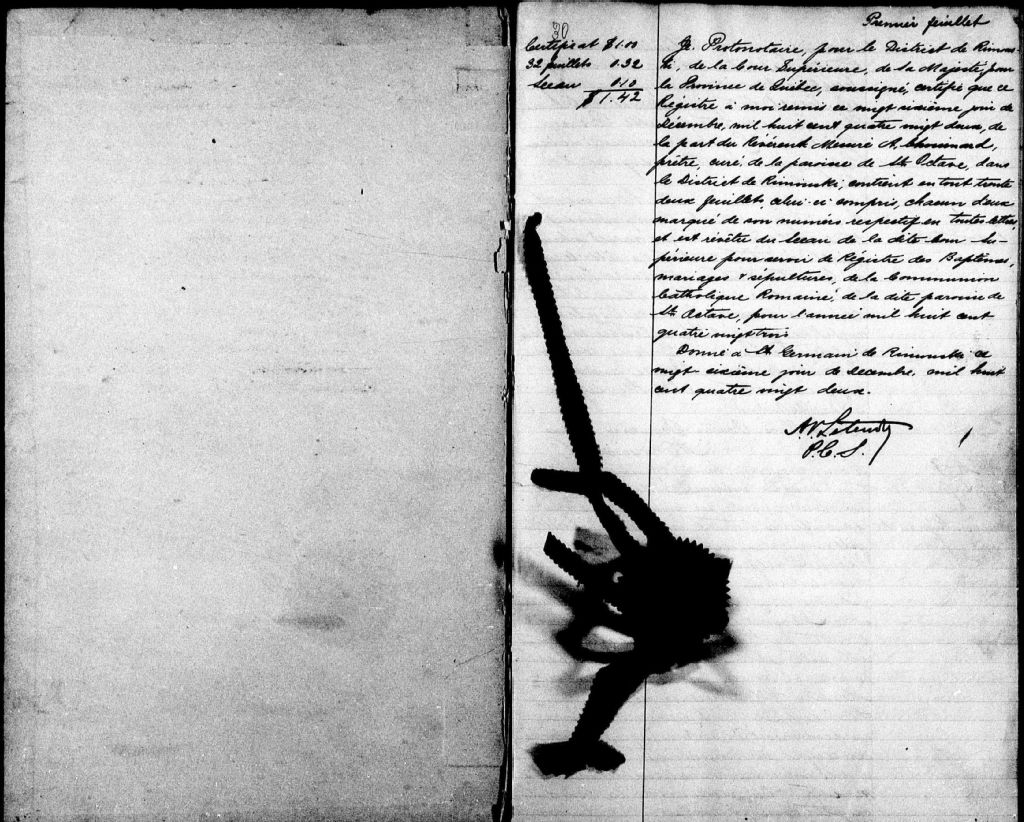 Premier feuillet
30
Certificat $1.00
32 feuillets 0.32
Sceau 0.10
$1.42
Je, Protonotaire, pour le District de Rimous-
ki, de la Cour Supérieure, de Sa Majesté, pour
la Province de Québec, soussigné, certifie que ce
Régistre à moi remis ce vingt sixième jour de
Décembre, mil huit cent quatre vingt deux, de
la part du Révérend Messire A. Chouinard,
prêtre, curé, de la paroisse de Ste Octave, dans
le District de Rimouski, contient en tout trente
deux feuillets, celui-ci compris, chacun d'eux
marqué de son numéro respectif en toutes lettres,
et est revêtu du Sceau de la dite Cour Su-
périeure pour servir de Régistre des Baptêmes,
mariages & sépultures, de la Communion
Catholique Romaine, de la dite paroisse de
Ste Octave, pour l'année mil huit cent
quatre vingt trois
Donné à St Germain de Rimouski ce
vingt-sixième jour de decembre, mil huit
cent quatre vingt deux.
P.C.S.